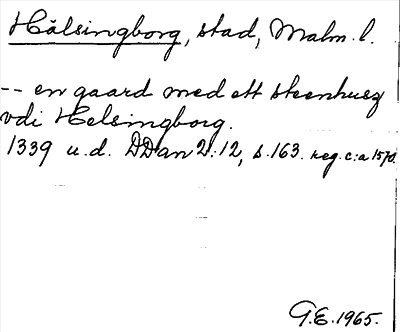 Hälsingborg, stad, Malm. l.
-- en gaard med ett steenhusz
vdi Helsingborg.
1339 u.d. DDan 2:12, s.163. reg. c:a 1570.
G.E. 1965.